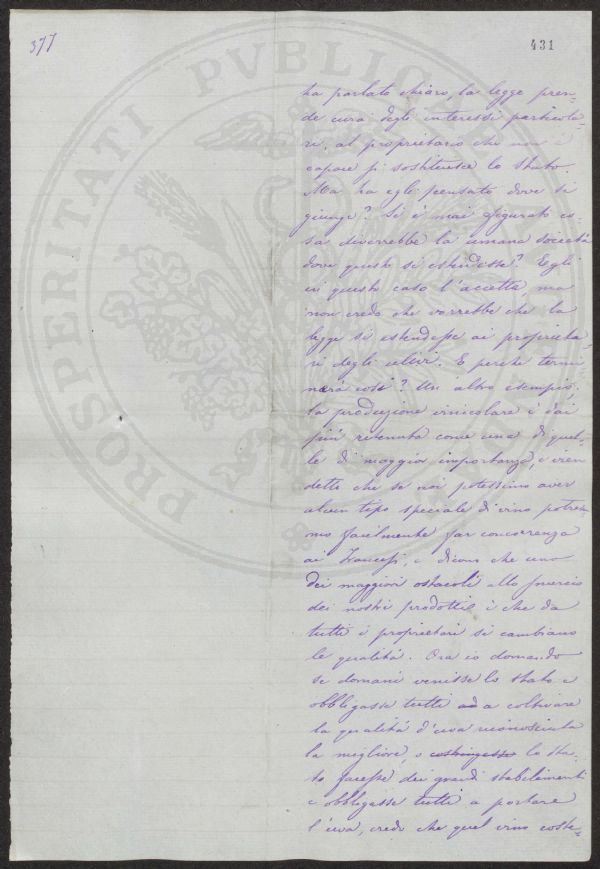 377
431
PROSPERITATI PVBLICAE
ha parlato chiaro, la legge pren-
de cura degli interessi particola-
ri, al proprietario che non è
capace si sostituisce lo Stato.
Ma ha egli pensato dove si
giunge? Si è mai figurato co-
sa diverrebbe la umana società
dove questo si estendesse? Egli
in questo caso l'accetta, ma
non credo che vorrebbe che la
legge si estendesse ai proprieta-
ri degli ulivi. E perchè termi-
nerà così? Un altro esempio;
la produzione vinicolare è dai
più ritenuta come una di quel-
le di maggior importanza, e vien
detto che se noi potessimo aver
alcun tipo speciale di vino potrem-
mo facilmente far concorrenza
ai Francesi, e dicono che uno
dei maggiori ostacoli allo smercio
dei nostri prodotti è che da
tutti i proprietari si cambiano
le qualità. Ora io domando
se domani venisse lo Stato e
obbligasse tutti ad a coltivare
la qualità d'uva riconosciuta
la migliore, o costringesse lo Sta-
to facesse dei grandi stabilimenti
e obbligasse tutti a portare
l'uva, credo che quel vino coste-